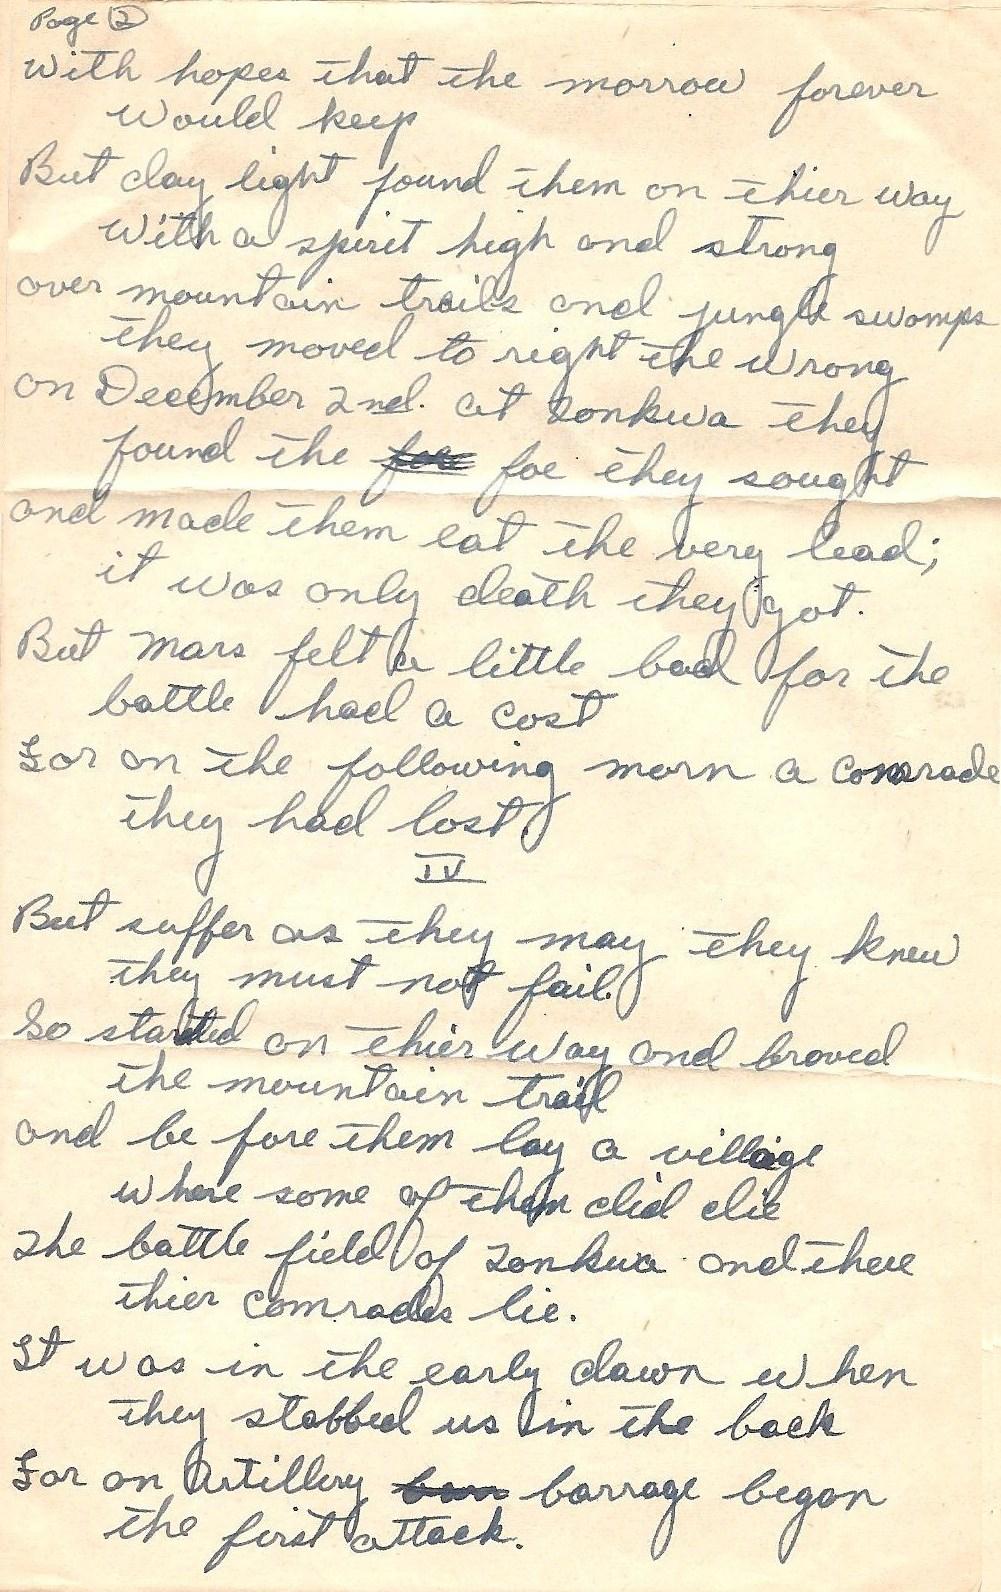 Page 2
With hopes that the morrow forever
would keep
But day light found them on thier way
with a spirit high and strong
over mountain trails and jungle swamps
they moved to right the wrong
on December 2nd. at Tonkwa they
found the foe foe they sought
and made them eat the very lead;
it was only death they got.
But Mars felt a little bad for the
battle had a cost
For on the following morn a comrade
they had lost
IV
But suffer as they may they knew
they must not fail.
So started on thier way and braved
the mountain trail
and be fore them lay a village
where some of them did die
The battle field of Tonkwa and there
thier comrades lie.
It was in the early dawn when
they stabbed us in the back
For an Artillery barrage began
the first attack.